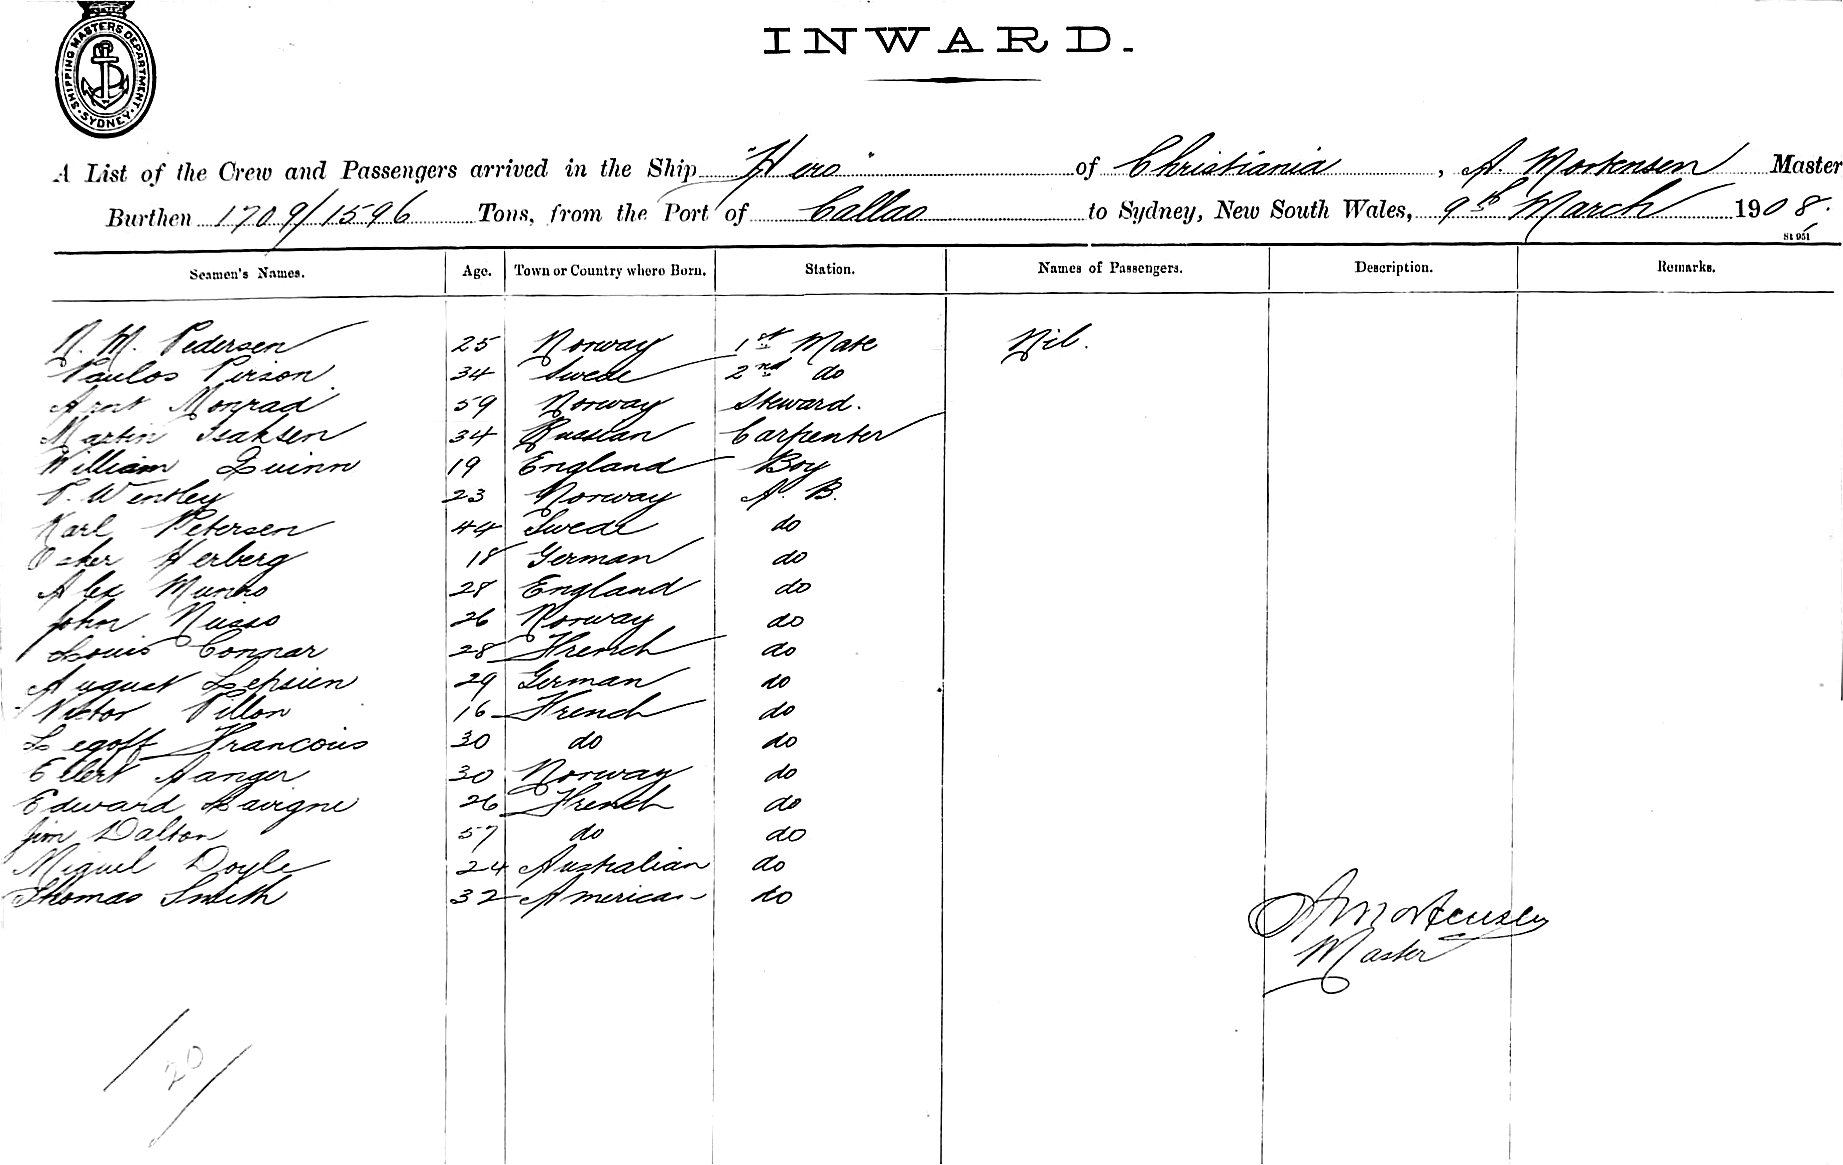 SHIPPING MASTERS DEPARTMENT.
SYDNEY
INWARD.
A List of the Crew and Passengers arrived in the Ship "Hero" of Christiania, A. Mortensen Master
Burthen 1709/1596 Tons, from the Port of Callao to Sydney, New South Wales, 9th March 1908.
St 951
Seamen's Names. Age. Town or Country where Born. Station. Names of Passengers. Description. Remarks.
N. M. Pedersen 25 Norway 1st Mate Nil.
Paulos Pirson 34 Swede 2nd do
Arnt Monrad 59 Norway Steward.
Martin Isaksen 34 Russian Carpenter
William Quinn 19 England Boy
P. Wensley 23 Norway A. B.
Karl Petersen 44 Swede do
Osker Herberg 18 German do
Alex Munro 28 England do
John 26 Norway do
Louis Connar 28 French do
August Lepsien 29 German do
Victor Pillon 16 French do
Legoff Francois 30 do do
Ellert Aanger 30 Norway do
Edward Lavigne 26 French do
Jim Dalton 57 do do
Miguel Doyle 24 Australian do
Thomas Smith 32 American do
A Mortensen
Master
20